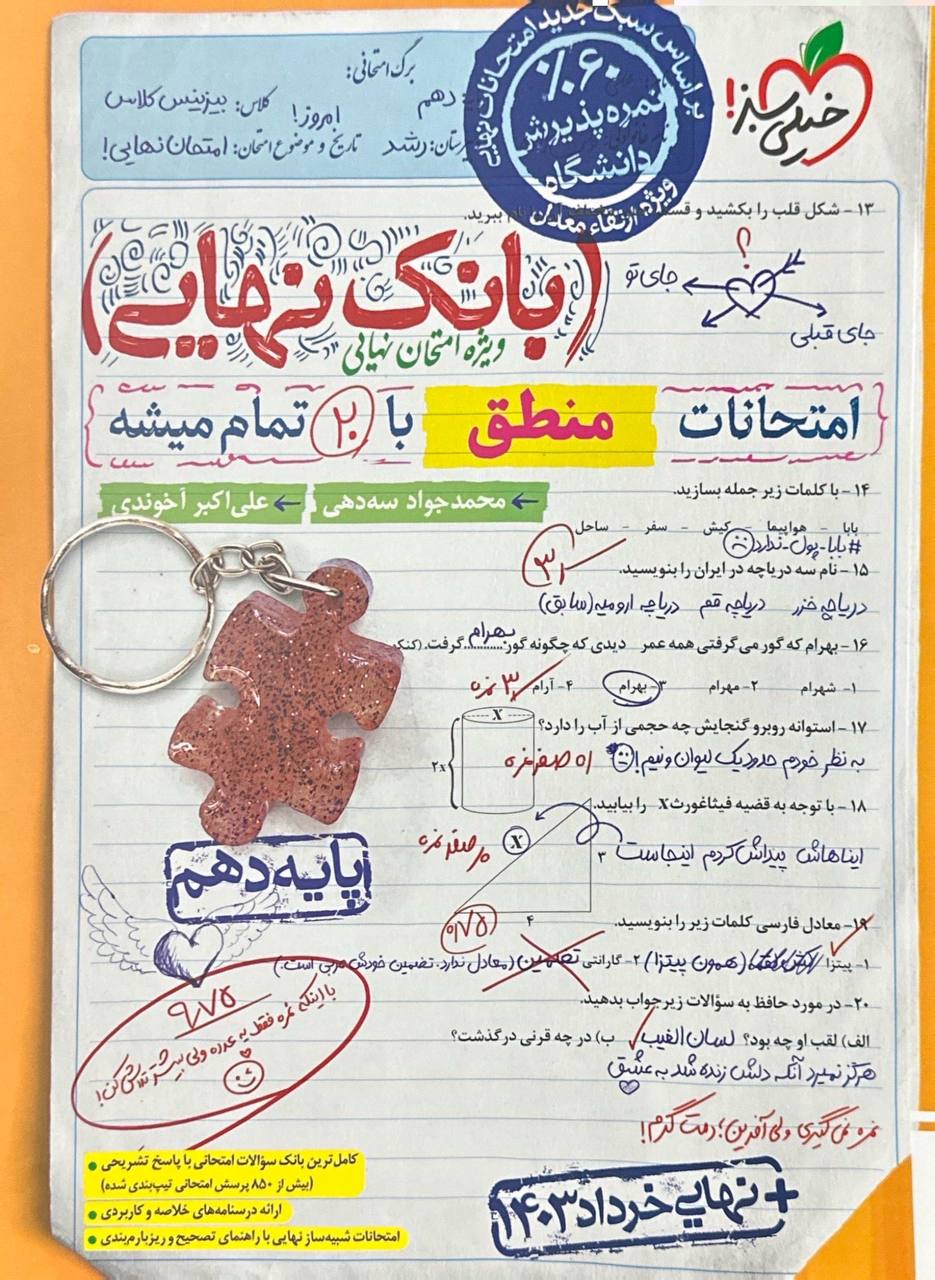 خیلی سبز!
براساس سبک جدید امتحانات نهایی
٪۶۰
نمره پذیرش
دانشگاه
ویژه ارتقاء معدل
برگ امتحانی:
دهم
کلاس: بیزینس کلاس
رشد
تاریخ و موضوع امتحان: امروز! امتحان نهایی!
۱۳ – شکل قلب را بکشید و
ببرید.
؟
جای تو
جای قبلی
(بانک نهایی)
ویژه امتحان نهایی
امتحانات منطق با ۲۰ تمام میشه
۱۴ – با کلمات زیر جمله بسازید.
← محمدجواد سه‌دهی ← علی‌اکبر آخوندی
بابا – هواپیما – کیش – سفر – ساحل
#بابا-پول-ندارد
۳
۱۵ – نام سه دریاچه در ایران را بنویسید.
دریاچه خزر دریاچه قم دریاچه ارومیه (سابق)
۱۶ – بهرام که گور می گرفتی همه عمر دیدی که چگونه گور بهرام گرفت.
۱- شهرام ۲- مهرام ۳- بهرام ۴- آرام
۳ نمره
۱۷ – استوانه روبرو گنجایش چه حجمی از آب را دارد؟
X
۲x
به نظر خودم حدود یک لیوان و نیم!
صفر نمره
۱۸ – با توجه به قضیه فیثاغورث X را بیابید.
X
۳
۴
ایناهاش پیداش کردم اینجاست
صفر نمره
پایه دهم
۰/۷۵
۱۹- معادل فارسی کلمات زیر را بنویسید.
۱- پیتزا (همون پیتزا) ۲- گارانتی تضمین (معادل ندارد. تضمین خودش عربی است.)
۲۰- در مورد حافظ به سؤالات زیر جواب بدهید.
الف) لقب او چه بود؟ لسان الغیب ب) در چه قرنی درگذشت؟
هرگز نمیرد آنکه دلش زنده شد به عشق
۹/۷۵
با اینکه نمره فقط یه عدده ولی بیشتر تلاش کن!
نمره نمی‌گیری ولی آفرین؛ دمت گرم!
کامل‌ترین بانک سؤالات امتحانی با پاسخ تشریحی
(بیش از ۸۵۰ پرسش امتحانی تیپ‌بندی شده)
ارائه درسنامه‌های خلاصه و کاربردی
امتحانات شبیه‌ساز نهایی با راهنمای تصحیح و ریزبارم‌بندی
+ نهایی خرداد ۱۴۰۳